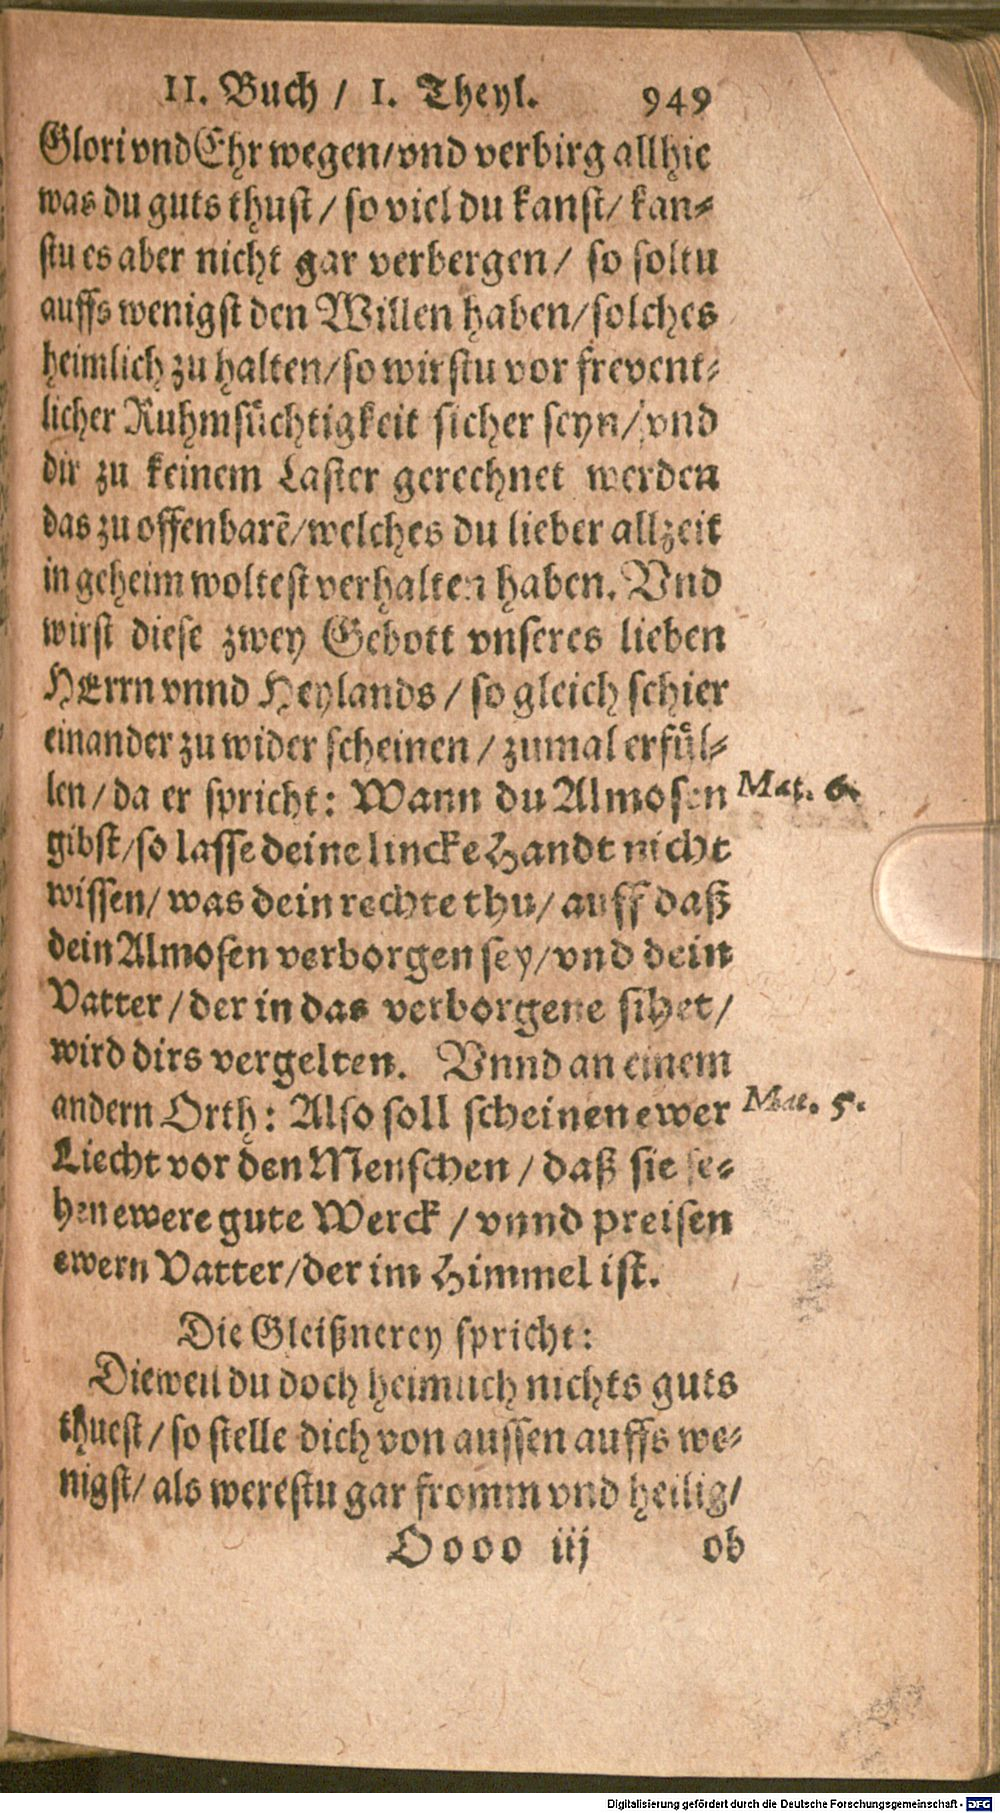 II. Buch / I. Theyl. 949
Glori vnd Ehr wegen/vnd verbirg allhie
was du guts thust / so viel du kanst/ kan-
stu es aber nicht gar verbergen / so soltu
auffs wenigst den Willen haben/solches
heimlich zu halten/so wirstu vor frevent-
licher Ruhmsüchtigkeit sicher seyn/ vnd
dir zu keinem Laster gerechnet werden
das zu offenbarē/welches du lieber allzeit
in geheim woltest verhalten haben. Vnd
wirst diese zwey Gebott vnseres lieben
HErrn vnnd Heylands / so gleich schier
einander zu wider scheinen / zumal erfül-
len / da er spricht: Wann du Almosen Mat. 6.
gibst/so lasse deine lincke Handt nicht
wissen/ was dein rechte thu/ auff daß
dein Almosen verborgen sey/vnd dein
Vatter / der in das verborgene sihet/
wird dirs vergelten. Vnnd an einem
andern Orth: Also soll scheinen ewer Mat. 5.
Liecht vor den Menschen / daß sie se-
hen ewere gute Werck / vnnd preisen
ewern Vatter/der im Himmel ist.
Die Gleißnerey spricht:
Dieweil du doch heimlich nichts guts
thuest / so stelle dich von aussen auffs we-
nigst/ als werestu gar fromm vnd heilig/
Oooo iij ob
Digitalisierung gefördert durch die Deutsche Forschungsgemeinschaft - DFG